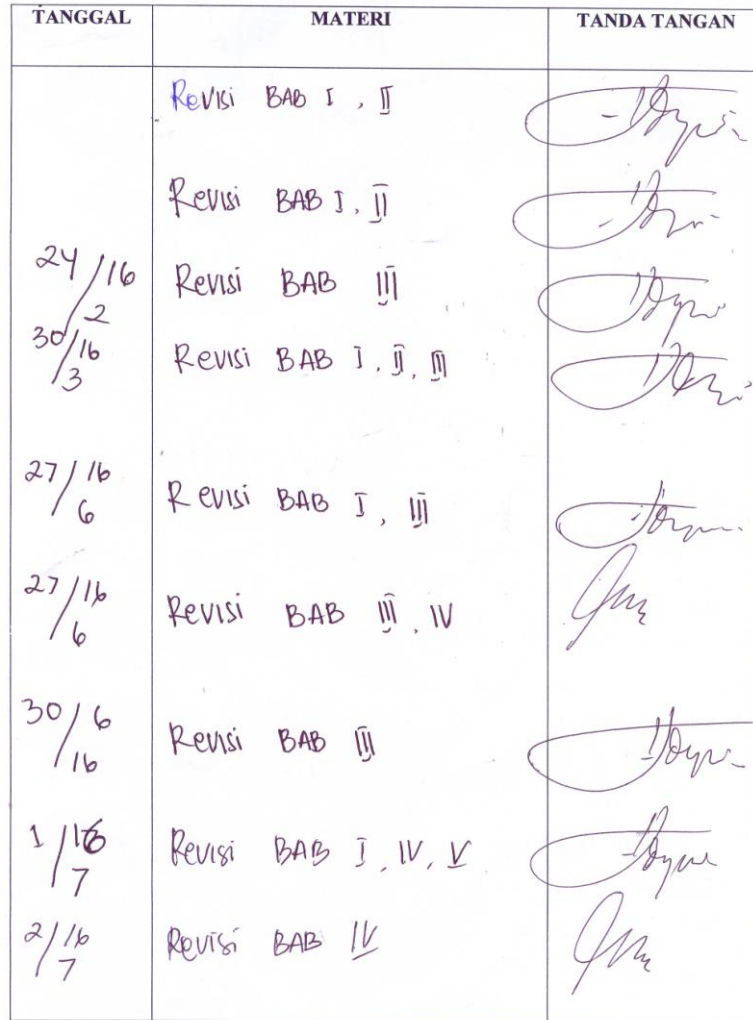 TANGGAL MATERI TANDA TANGAN
Revisi BAB I, II
Revisi BAB I, II
24/16 2 Revisi BAB III
30/16 3 Revisi BAB I, II, III
27/16 6 Revisi BAB I, III
27/16 6 Revisi BAB III, IV
30/6 16 Revisi BAB III
1/16 7 Revisi BAB I, IV, V
2/16 7 Revisi BAB IV